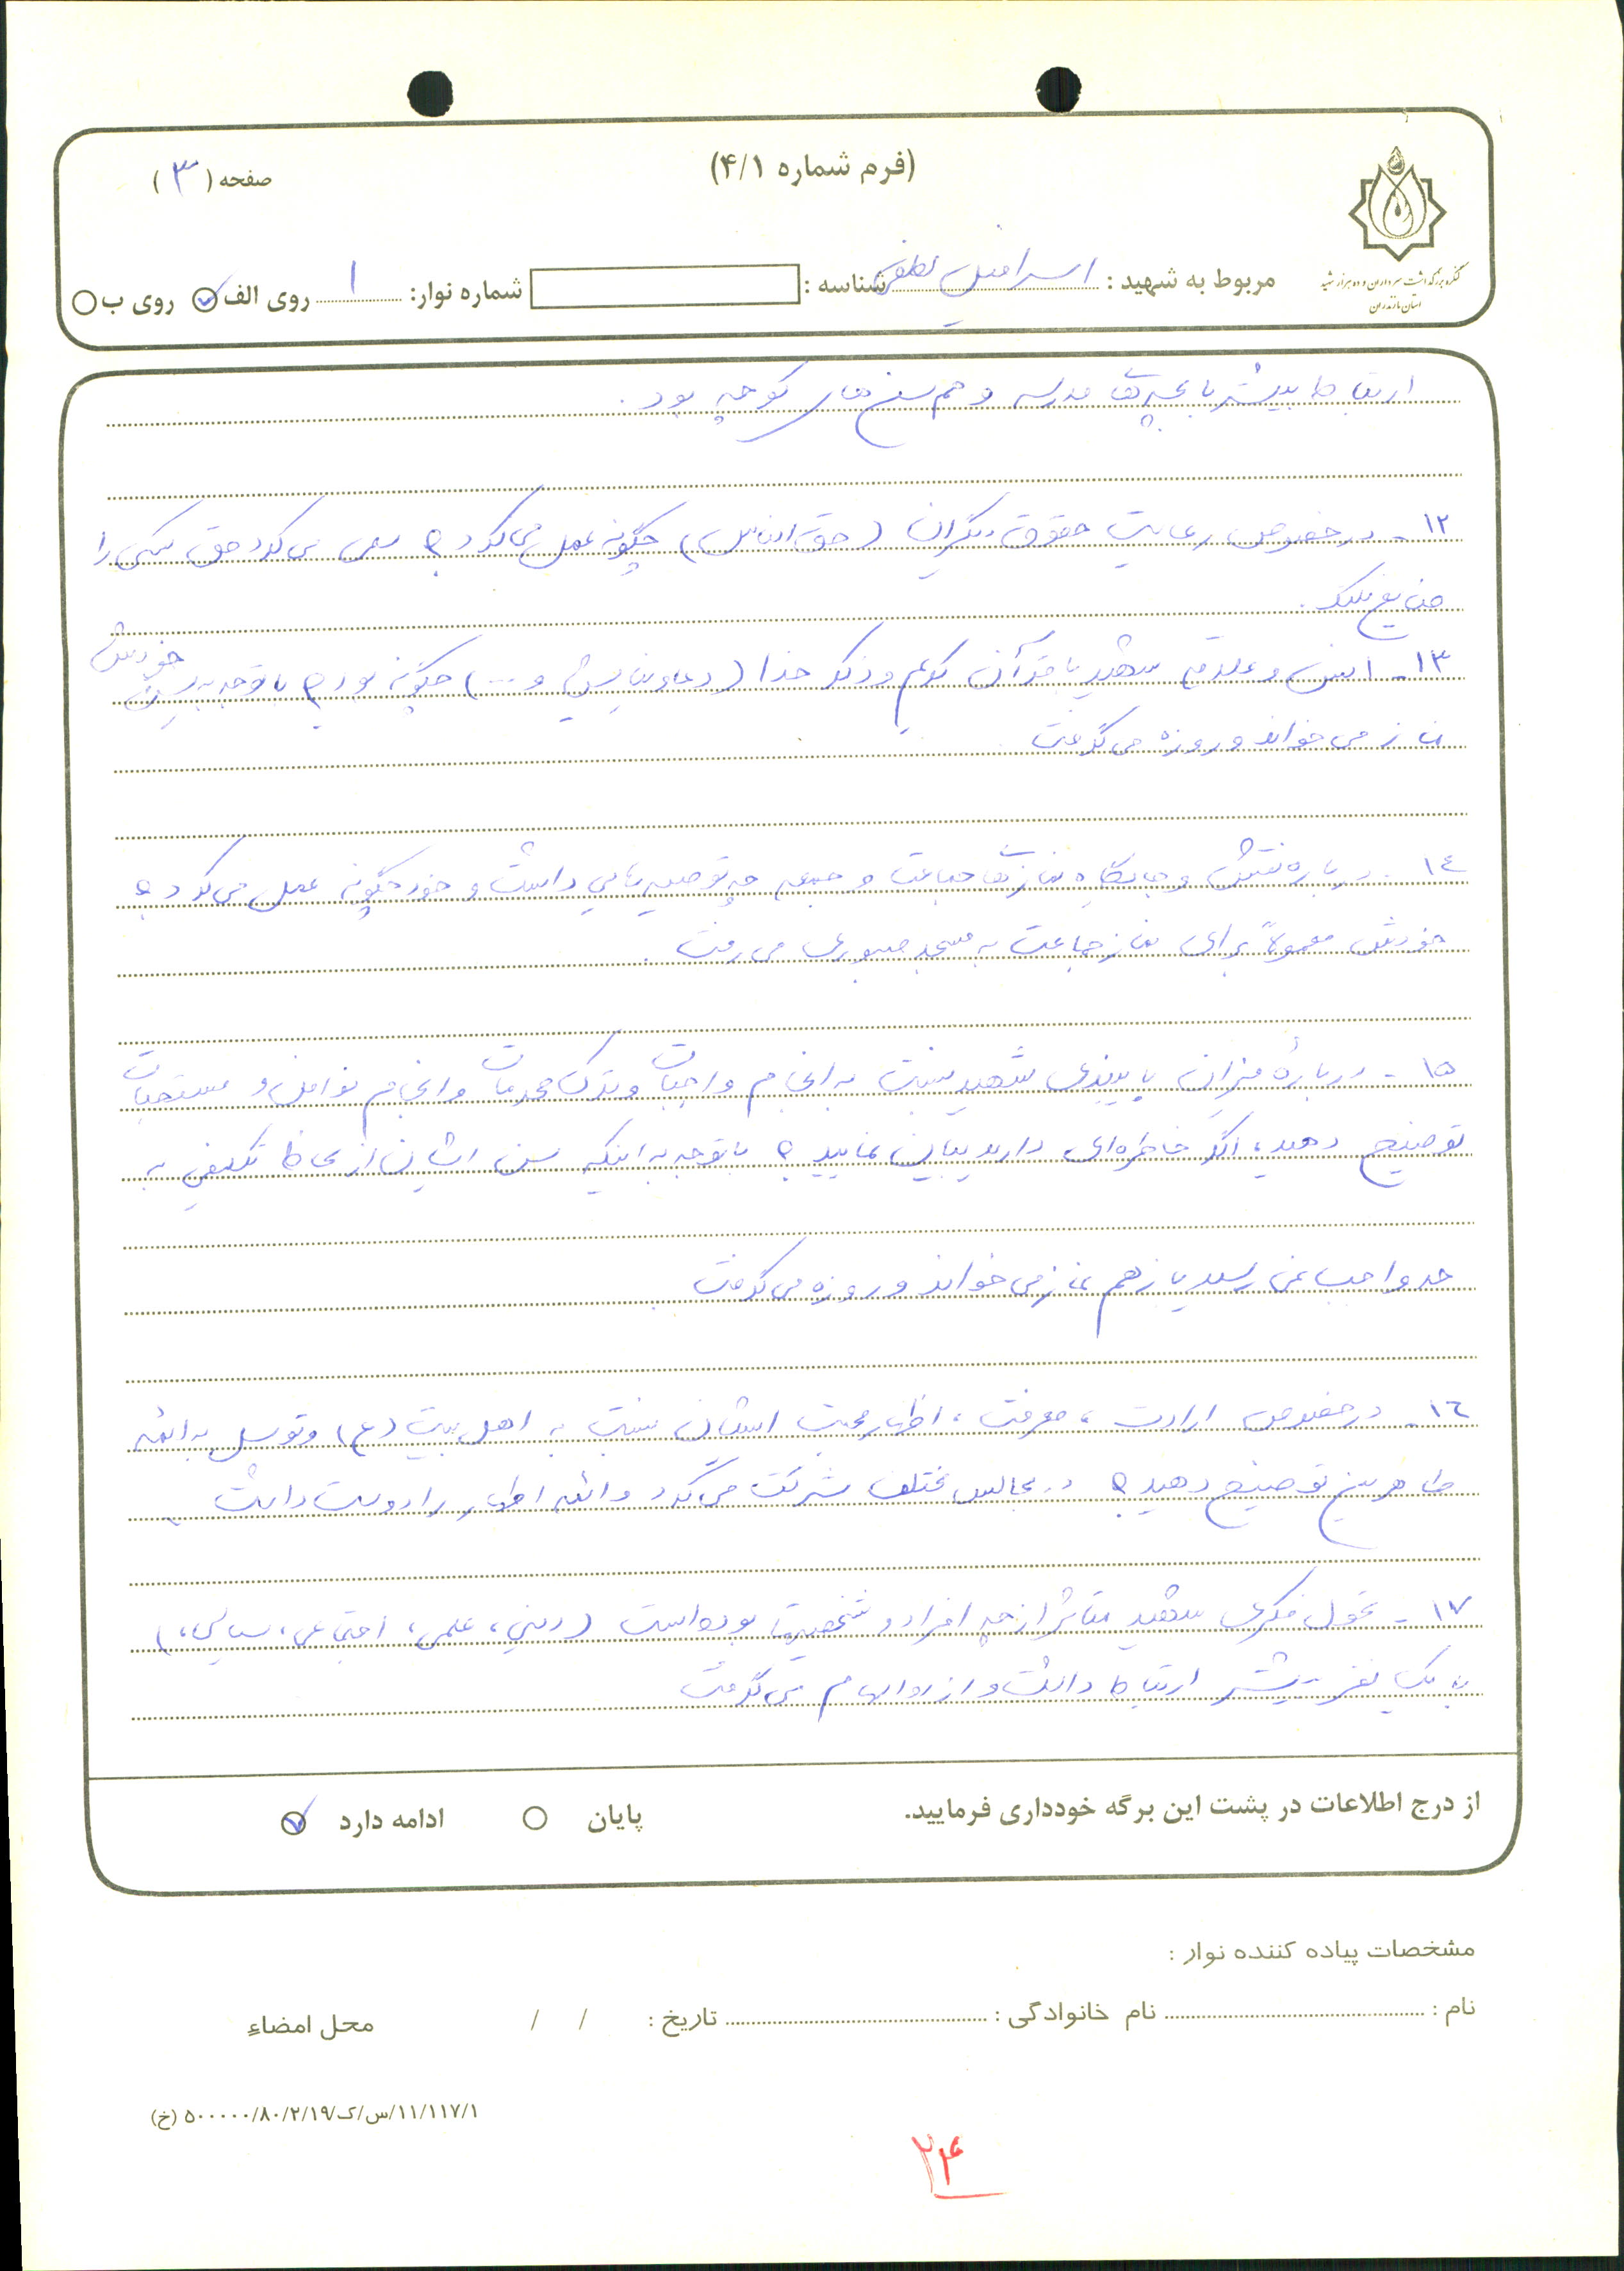 (فرم شماره ۴/۱)
صفحه (۳)
کنگره بزرگداشت سرداران و ده هزار شهید
استان مازندران
مربوط به شهید : اسرافیل لطفی شناسه : شماره نوار: ۱ روی الف روی ب
ارتباط بیشتر با بچه‌های مدرسه و هم سن های کوچه بود.
۱۲- در خصوص رعایت حقوق دیگران (حق الناس) چگونه عمل می‌کرد؟ سعی می‌کرد حق کسی را
ضایع نکند.
۱۳- انس و علاقه شهید با قرآن کریم و ذکر خدا (دعا و نیایش و ...) چگونه بود؟ با توجه به سن خودش
نماز می‌خواند و روزه می‌گرفت
۱۴- درباره نقش و جایگاه نمازهای جماعت و جمعه چه توصیه‌هایی داشت و خود چگونه عمل می‌کرد؟
خودش معمولاً برای نماز جماعت به مسجد صبوری می‌رفت.
۱۵- دربارهٔ میزان پایبندی شهید نسبت به انجام واجبات و ترک محرمات و انجام نوافل و مستحبات
توضیح دهید، اگر خاطره‌ای دارید بیان نمایید؟ با توجه به اینکه سن ایشان از لحاظ تکلیفی به
حد واجب نمی‌رسید باز هم نماز می‌خواند و روزه می‌گرفت
۱۶- در خصوص ارادت، معرفت، اظهار محبت ایشان نسبت به اهل بیت (ع) و توسل به ائمه
طاهرین توضیح دهید؟ در مجالس مختلف شرکت می‌کرد و ائمه اطهار را دوست داشت
۱۷- تحول فکری شهید متاثر از چه افراد و شخصیتها بوده است (دینی، علمی، اجتماعی، سیاسی،)
به یک نفر بیشتر ارتباط داشت و از او الهام می‌گرفت
از درج اطلاعات در پشت این برگه خودداری فرمایید.
پایان ادامه دارد
مشخصات پیاده کننده نوار :
نام : نام خانوادگی : تاریخ : / / محل امضاء
۱۱/۱۱۷/۱/س/ک/۵۰۰۰۰۰/۸۰/۲/۱۹ (خ)
۲۴